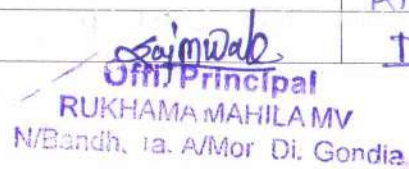 Offi. Principal
RUKHAMA MAHILA MV
N/Bandh. Ta. A/Mor Di. Gondia